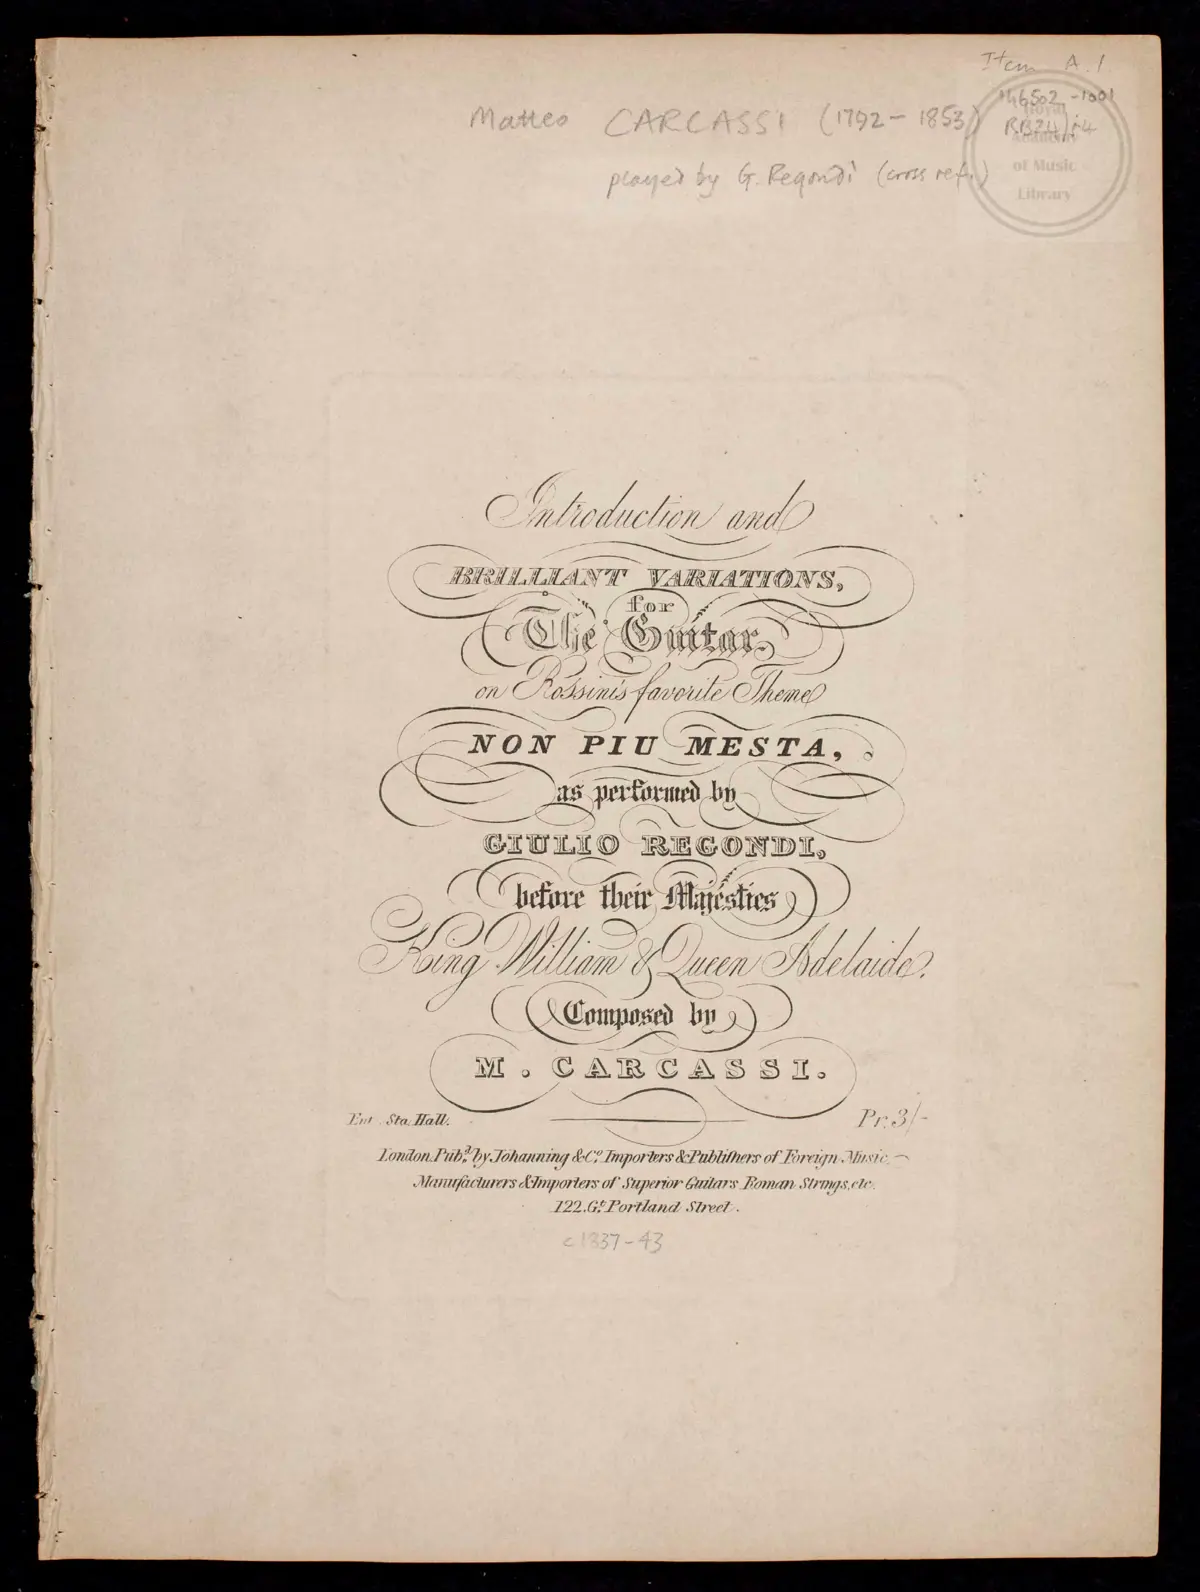 Item A.1.
146502-1001
Matteo CARCASSI (1792-1853)
Royal
Academy
of Music
Library
played by G. Regondi (cross ref.)
Introduction and
BRILLIANT VARIATIONS,
for
The Guitar,
on Rossini's favorite Theme
NON PIU MESTA,
as performed by
GIULIO REGONDI,
before their Majesties
King William & Queen Adelaide.
Composed by
M. CARCASSI.
Ent. Sta. Hall.
Pr. 3/-
London. Pubd. by Johanning & Co. Importers & Publishers of Foreign Music
Manufacturers & Importers of Superior Guitars Roman Strings, etc.
122. Gt. Portland Street.
c1837-43